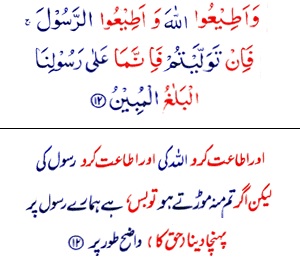 وَاَطِيْعُوا اللّٰهَ وَ اَطِيْعُوا الرَّسُوْلَ ۚ
فَاِنْ تَوَلَّيْتُمْ فَاِ نَّمَا عَلٰى رَسُوْلِنَا
الْبَلٰغُ الْمُبِيْنُ ﴿۱۲﴾
اور اطاعت کرو اللہ کی اور اطاعت کرو رسول کی
لیکن اگر تم منہ موڑتے ہو تو بس ہے ہمارے رسول پر
پہنچا دینا (حق کا) واضح طور پر ﴿۱۲﴾